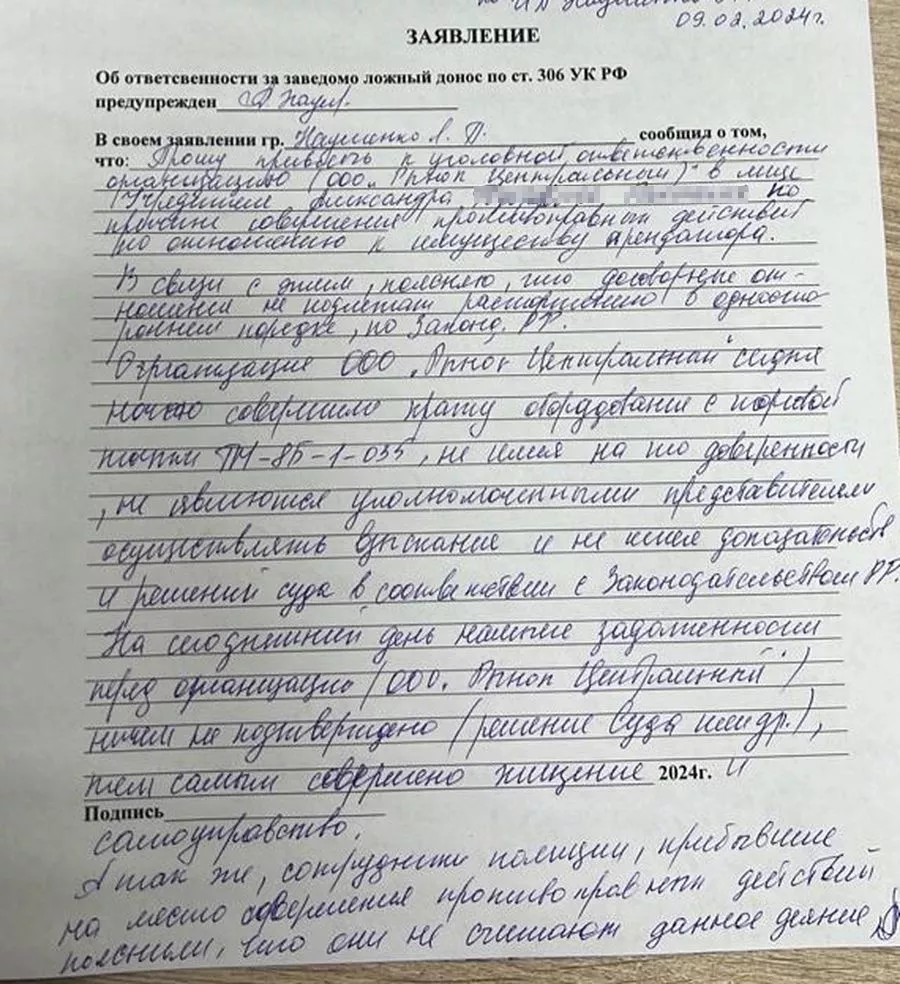 09.02.2024г.
ЗАЯВЛЕНИЕ
Об ответсвенности за заведомо ложный донос по ст. 306 УК РФ
предупрежден
В своем заявлении гр. Науменко А. П. сообщил о том,
что: Прошу привлечь к уголовной ответственности
организацию (ООО „Рынок Центральный") в лице
Учредителя Александра по
причине совершения противоправных действий
по отношению к имуществу арендатора.
В связи с этим, поясняю, что договорные от-
ношения не подлежат расторжению в односто
роннем порядке, по Законод. РФ.
Организация ООО „Рынок Центральный" сегодня
ночью совершило кражу оборудования с торговой
точки ТМ-8Б-1-035, не имея на то доверенности
, не являются уполномоченными представителями
осуществлять взыскание и не имея доказательств
и решений суда в соответствии с Законодательством РФ.
На сегодняшний день наличие задолженности
перед организацию (ООО. Рынок Центральный")
ничем не подтверждено (решение Суда или др.),
тем самым совершено хищение 2024г. и
Подпись
самоуправство.
А так же, сотрудники полиции, прибывшие
на место совершения противоправных действий
пояснили, что они не считают данное деяние,